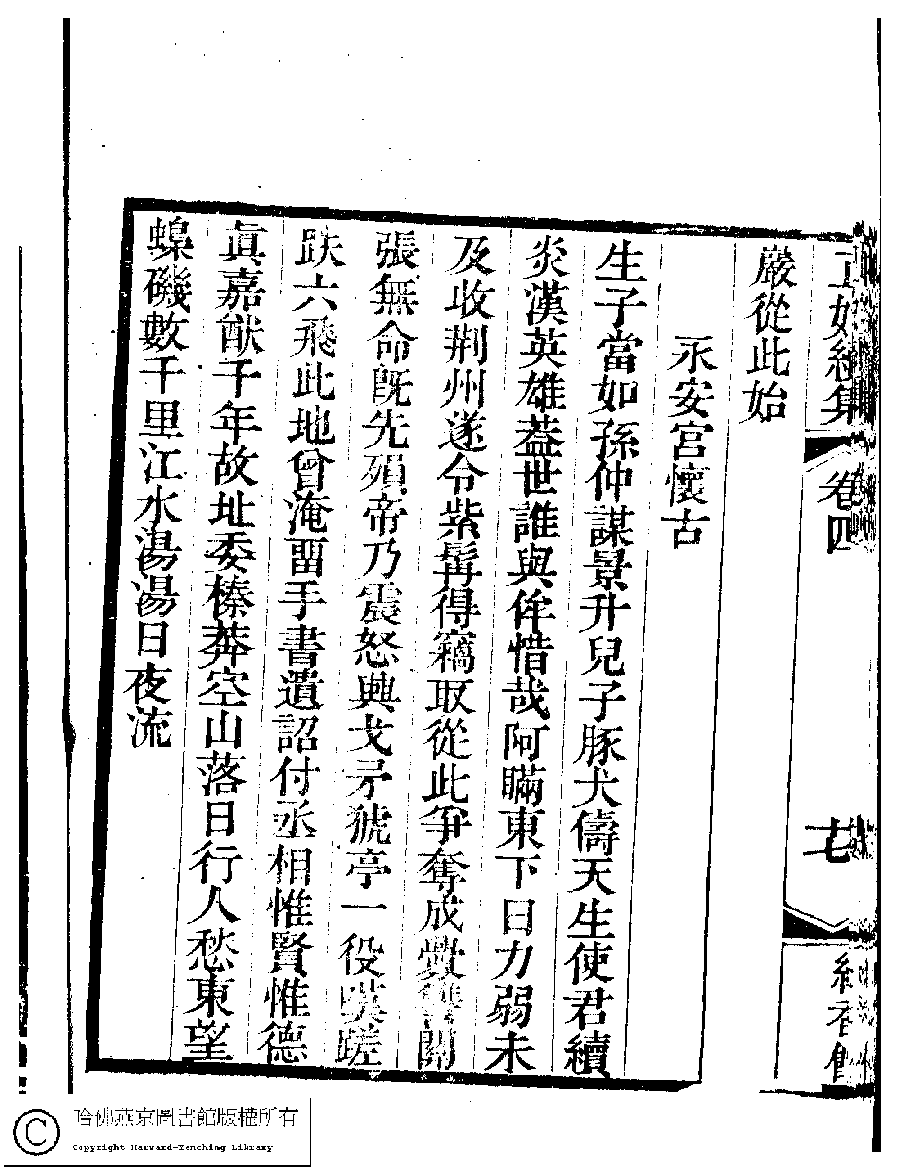 卷四
嚴從此始
永安宮懷古
生子當如孫仲謀景升兒子豚犬儔天生使君續
炎漢英雄葢世誰與侔惜哉阿瞞東下日力弱未
及收荆州遂令紫髯得竊取從此爭奪成釁讐關
張無命旣先殞帝乃震怒興戈矛猇亭一役嘆蹉
跌六飛此地曾淹畱手書遺詔付丞相惟賢惟德
眞嘉猷千年故址委榛莽空山落日行人愁東望
蟂磯數千里江水湯湯日夜流
哈佛燕京圖書館版權所有
Copyright Harvard-Yenching Library